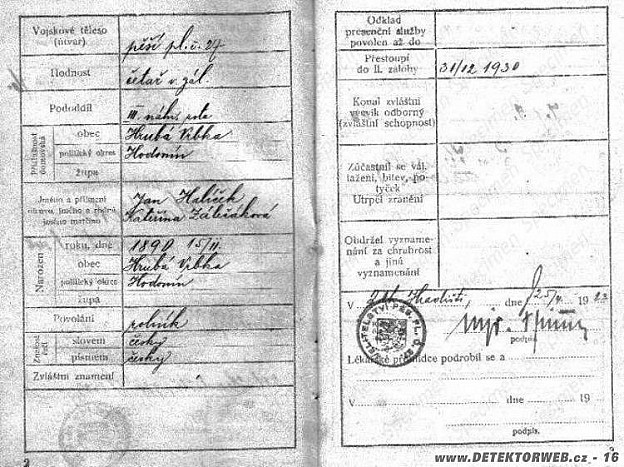 Vojskové těleso
(útvar)
pěší pl. č. 27
Hodnost
četař v zál.
Pododdíl
III. náhr. rota
Příslušnost domovská
obec
Hrubá Vrbka
politický okres
Hodonín
župa
Jméno a příjmení
otcovo, jméno a
jméno matčino
Jan
Kateřina
Narozen
roku, dne
1890 15/11.
obec
Hrubá Vrbka
politický okres
Hodonín
župa
Povolání
rolník
Znalost řeči
slovem
česky
písmem
česky
Zvláštní znamení
Odklad
presenční služby
povolen až do
Přestoupí
do II. zálohy
31/12 1930
Konal zvláštní
výcvik odborný
(zvláštní schopnost)
Zúčastnil se vál.
tažení, bitev, po-
tyček
Utrpěl zranění
Obdržel vyzname-
nání za chrabrost
a jiná
vyznamenání
V Uh. Hradišti, dne 25/4 1923
mjr.
podpis.
Lékařské prohlídce podrobil se a
V dne 19
podpis.
www.DETEKTORWEB.cz - 16